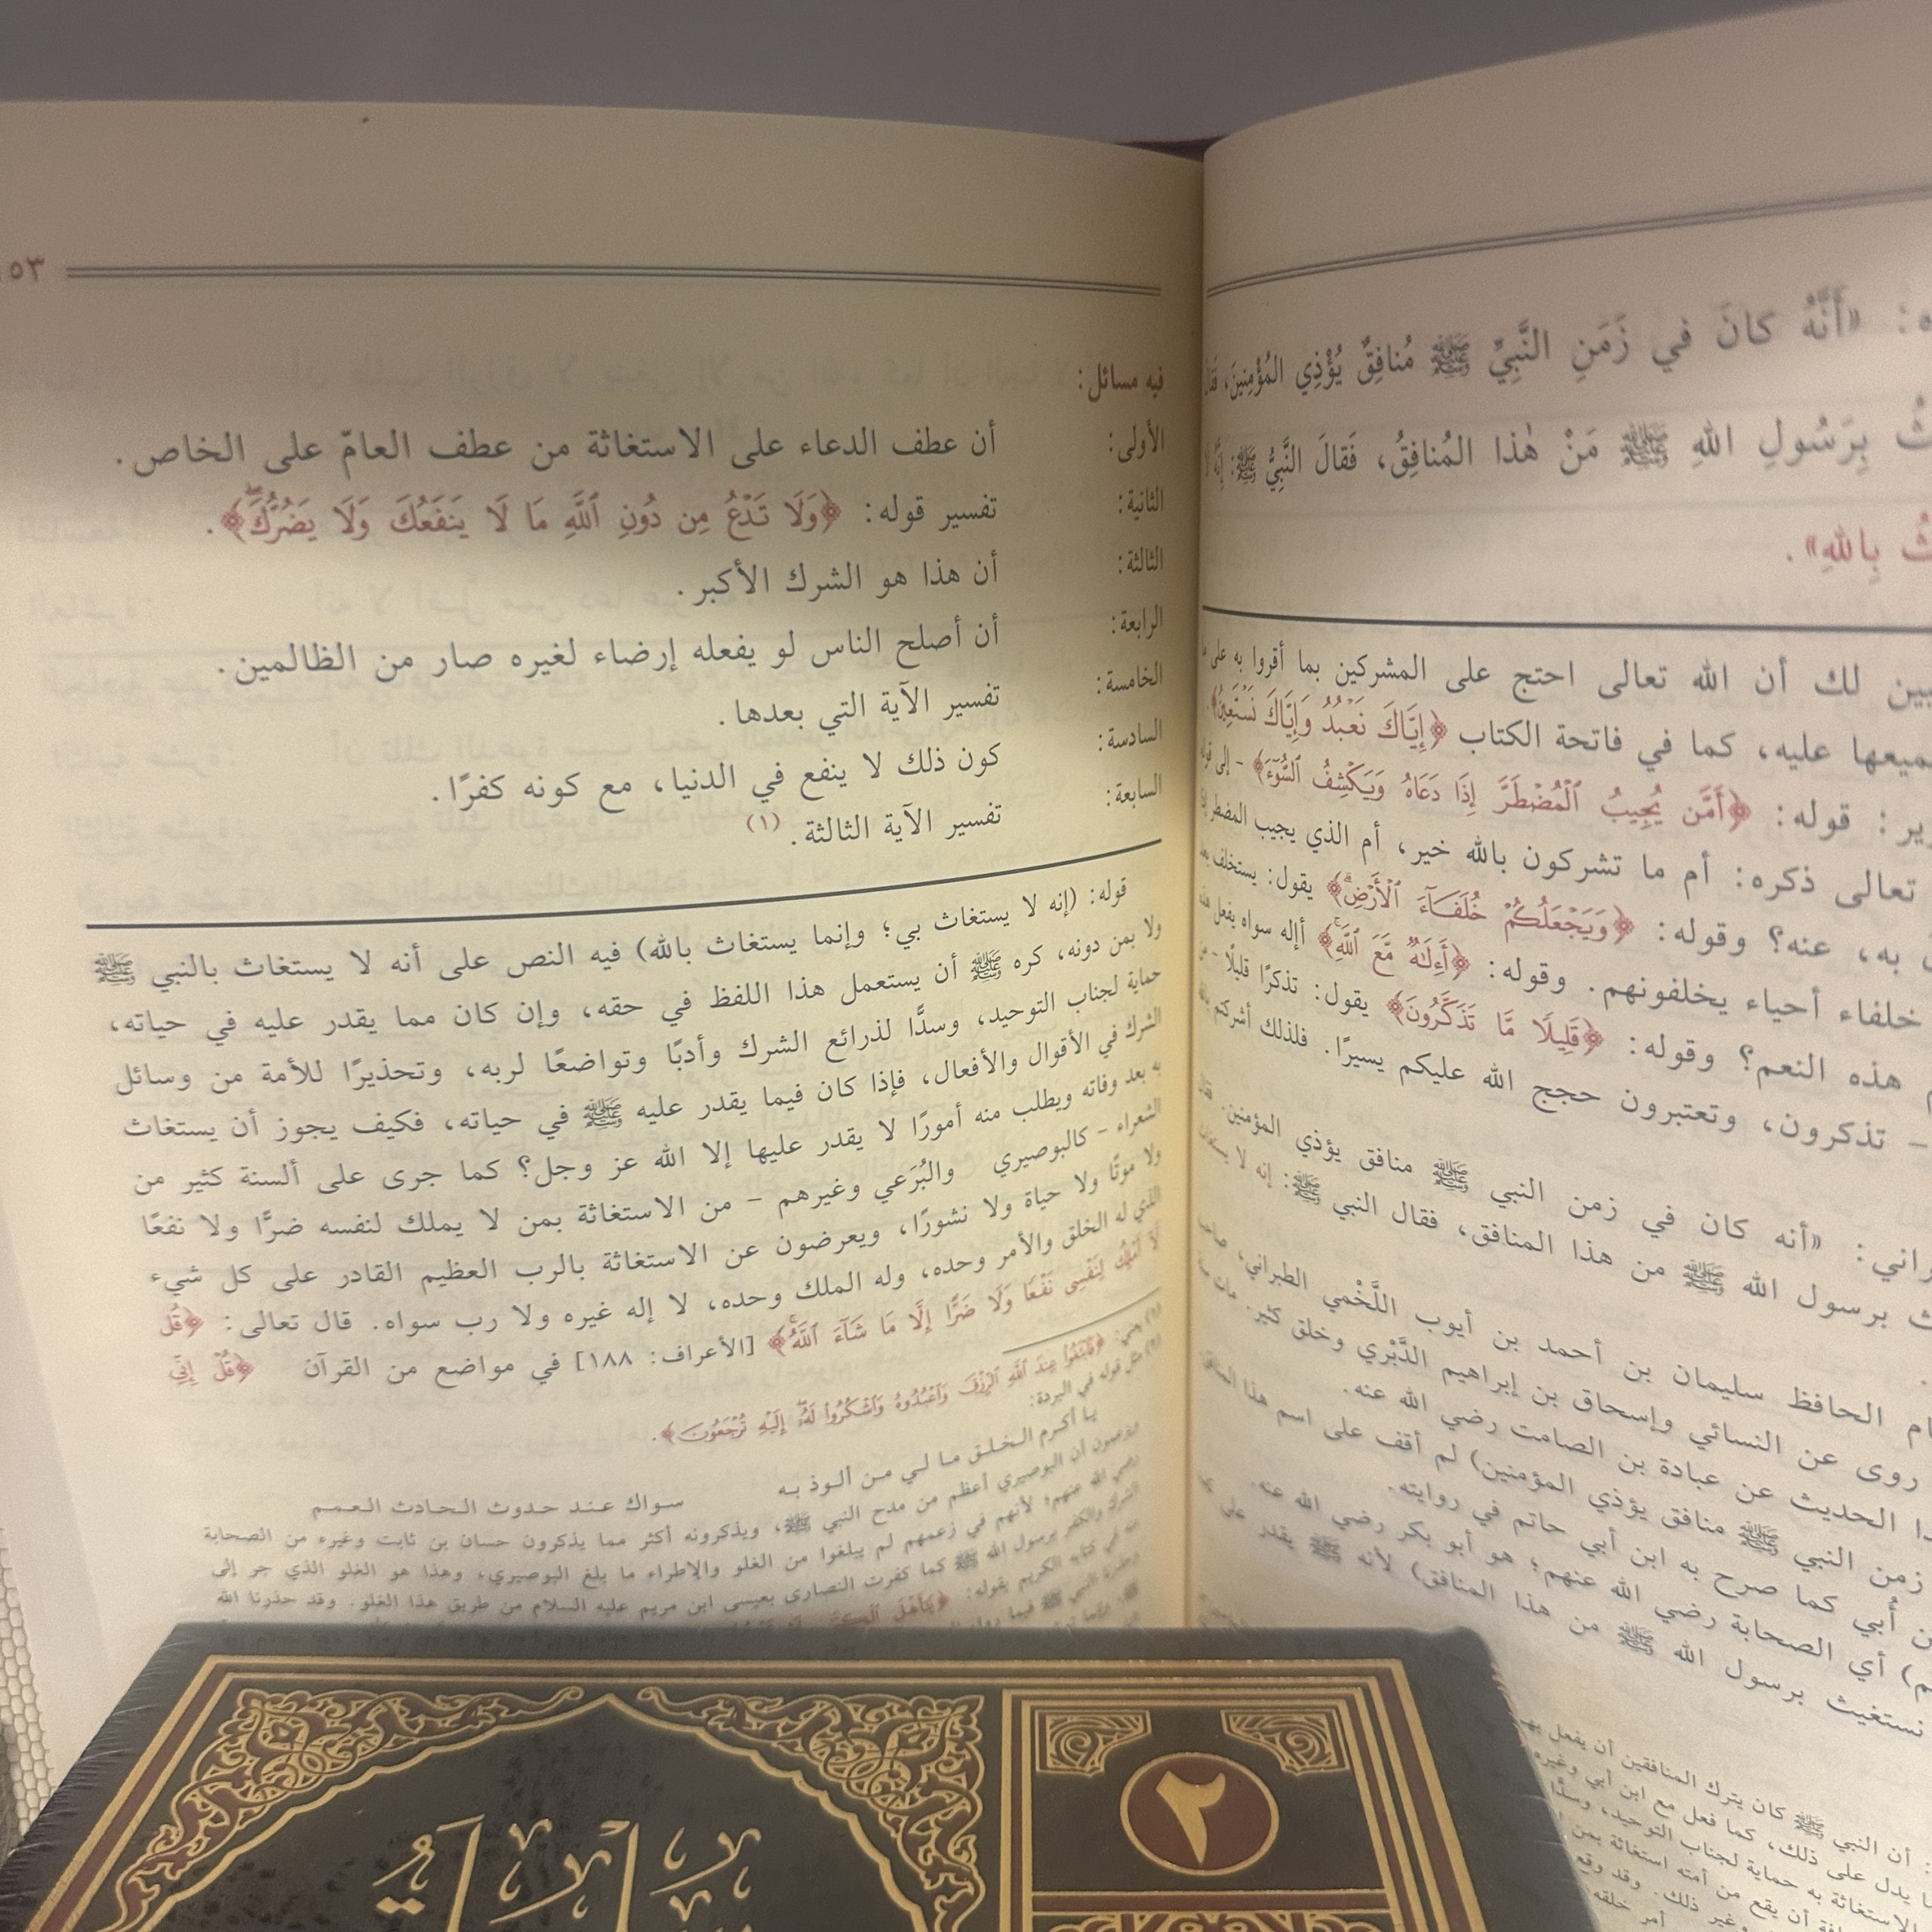 «أَنَّهُ كانَ في زَمَنِ النَّبِيِّ ﷺ مُنافِقٌ يُؤْذِي المُؤْمِنِينَ،
بِرَسُولِ اللهِ ﷺ مَنْ هٰذا المُنافِقُ، فَقالَ النَّبِيُّ ﷺ:
بِاللهِ».
لك أن الله تعالى احتج على المشركين بما أقروا به على
عليه، كما في فاتحة الكتاب ﴿إِيَّاكَ نَعْبُدُ وَإِيَّاكَ نَسْتَعِينُ﴾.
قوله: ﴿أَمَّن يُجِيبُ ٱلْمُضْطَرَّ إِذَا دَعَاهُ وَيَكْشِفُ ٱلسُّوٓءَ﴾ - إلى
تعالى ذكره: أم ما تشركون بالله خير، أم الذي يجيب المضطر
به، عنه؟ وقوله: ﴿وَيَجْعَلُكُمْ خُلَفَآءَ ٱلْأَرْضِ﴾ يقول: يستخلف
خلفاء أحياء يخلفونهم. وقوله: ﴿أَءِلَٰهٌ مَّعَ ٱللَّهِ﴾ أإله سواه يفعل
هذه النعم؟ وقوله: ﴿قَلِيلًا مَّا تَذَكَّرُونَ﴾ يقول: تذكرًا قليلًا -
- تذكرون، وتعتبرون حجج الله عليكم يسيرًا. فلذلك أشركتم
«أنه كان في زمن النبي ﷺ منافق يؤذي المؤمنين.
برسول الله ﷺ من هذا المنافق، فقال النبي ﷺ: إنه لا
الحافظ سليمان بن أحمد بن أيوب اللَّخْمي الطبراني،
روى عن النسائي وإسحاق بن إبراهيم الدَّبْري وخلق كثير. مات
الحديث عن عبادة بن الصامت رضي الله عنه.
زمن النبي ﷺ منافق يؤذي المؤمنين) لم أقف على اسم هذا
أُبي كما صرح به ابن أبي حاتم في روايته.
أي الصحابة رضي الله عنهم؛ هو أبو بكر رضي الله عنه.
نستغيث برسول الله ﷺ من هذا المنافق) لأنه ﷺ يقدر على
أن النبي ﷺ كان يترك المنافقين أن يفعل
يدل على ذلك، كما فعل مع ابن أبي وغيره
به حماية لجناب التوحيد،
أن يقع من أمته استغاثة بمن
غير ذلك. وقد وقع
أمر خلقه
٥٣
فيه مسائل:
الأولى: أن عطف الدعاء على الاستغاثة من عطف العامّ على الخاص.
الثانية: تفسير قوله: ﴿وَلَا تَدْعُ مِن دُونِ ٱللَّهِ مَا لَا يَنفَعُكَ وَلَا يَضُرُّكَ﴾.
الثالثة: أن هذا هو الشرك الأكبر.
الرابعة: أن أصلح الناس لو يفعله إرضاء لغيره صار من الظالمين.
الخامسة: تفسير الآية التي بعدها.
السادسة: كون ذلك لا ينفع في الدنيا، مع كونه كفرًا.
السابعة: تفسير الآية الثالثة.(١)
قوله: (إنه لا يستغاث بي؛ وإنما يستغاث بالله) فيه النص على أنه لا يستغاث بالنبي ﷺ
ولا بمن دونه، كره ﷺ أن يستعمل هذا اللفظ في حقه، وإن كان مما يقدر عليه في حياته،
حماية لجناب التوحيد، وسدًّا لذرائع الشرك وأدبًا وتواضعًا لربه، وتحذيرًا للأمة من وسائل
الشرك في الأقوال والأفعال، فإذا كان فيما يقدر عليه ﷺ في حياته، فكيف يجوز أن يستغاث
به بعد وفاته ويطلب منه أمورًا لا يقدر عليها إلا الله عز وجل؟ كما جرى على ألسنة كثير من
الشعراء - كالبوصيري والبُرَعي وغيرهم - من الاستغاثة بمن لا يملك لنفسه ضرًّا ولا نفعًا
ولا موتًا ولا حياة ولا نشورًا، ويعرضون عن الاستغاثة بالرب العظيم القادر على كل شيء
الذي له الخلق والأمر وحده، وله الملك وحده، لا إله غيره ولا رب سواه. قال تعالى: ﴿قُل
لَّآ أَمْلِكُ لِنَفْسِى نَفْعًا وَلَا ضَرًّا إِلَّا مَا شَآءَ ٱللَّهُ﴾ [الأعراف: ١٨٨] في مواضع من القرآن ﴿قُلْ إِنِّي
(١) هي: ﴿فَٱبْتَغُوا۟ عِندَ ٱللَّهِ ٱلرِّزْقَ وَٱعْبُدُوهُ وَٱشْكُرُوا۟ لَهُۥٓ إِلَيْهِ تُرْجَعُونَ﴾.
(٢) مثل قوله في البردة:
يا أكرم الخلق ما لي من ألوذ به سواك عند حدوث الحادث العمم
ويزعمون أن البوصيري أعظم من مدح النبي ﷺ، ويذكرونه أكثر مما يذكرون حسان بن ثابت وغيره من الصحابة
رضي الله عنهم؛ لأنهم في زعمهم لم يبلغوا من الغلو والإطراء ما بلغ البوصيري، وهذا هو الغلو الذي جر إلى
الشرك والكفر برسول الله ﷺ كما كفرت النصارى بعيسى ابن مريم عليه السلام من طريق هذا الغلو. وقد حذرنا الله
في كتابه الكريم بقوله: ﴿يَٰٓأَهْلَ ٱلْكِتَٰبِ
٢